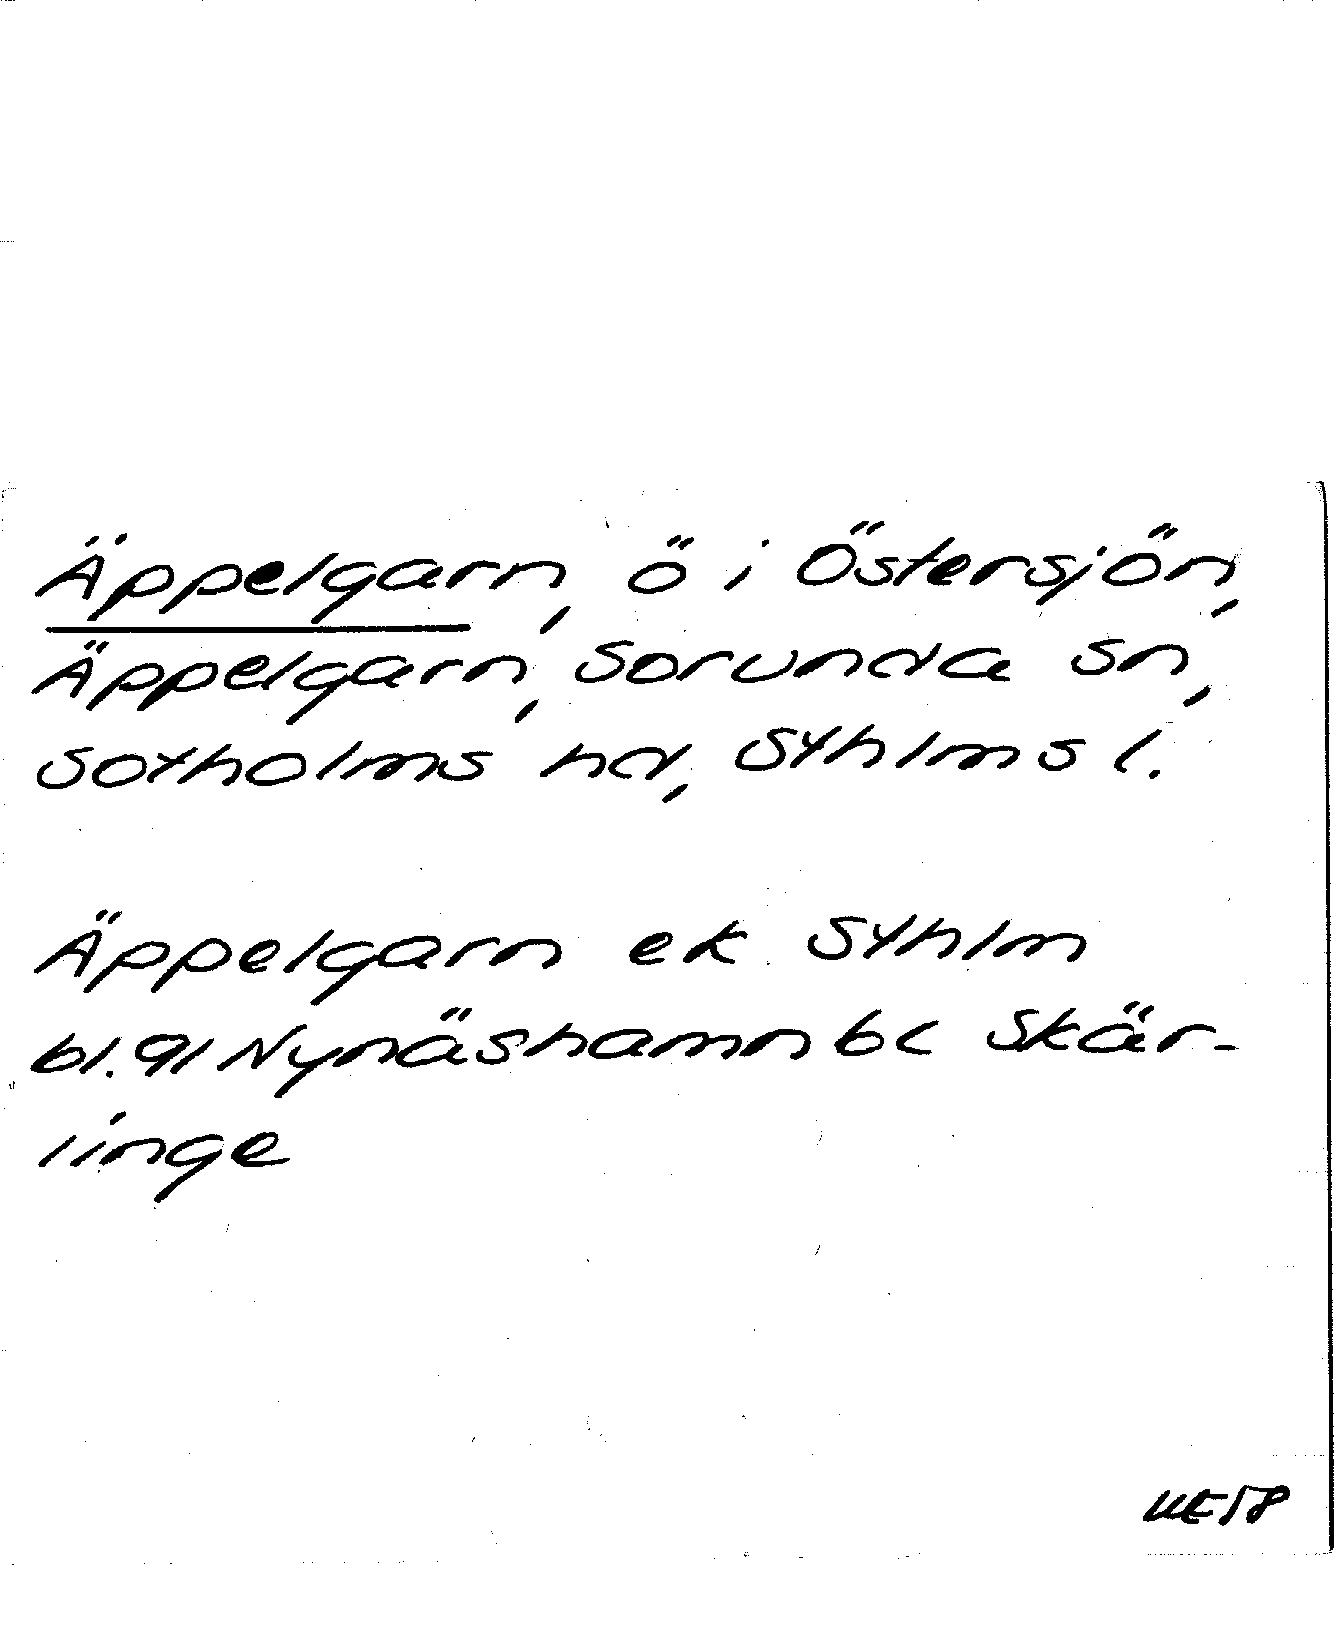 Äppelgarn, ö i Östersjön,
Äppelgarn, Sorunda sn,
Sotholms hd, Sthlms l.
Äppelgarn ek Sthlm
bl. 91 Nynäshamn bc Skär-
linge